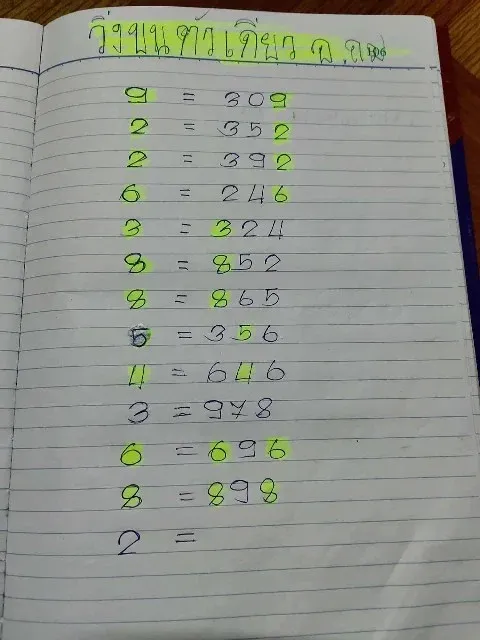 วิ่งบนตัวเดียว อ.ถนัด
9 = 309
2 = 352
2 = 392
6 = 246
3 = 324
8 = 852
8 = 865
5 = 356
4 = 646
3 = 978
6 = 696
8 = 898
2 =